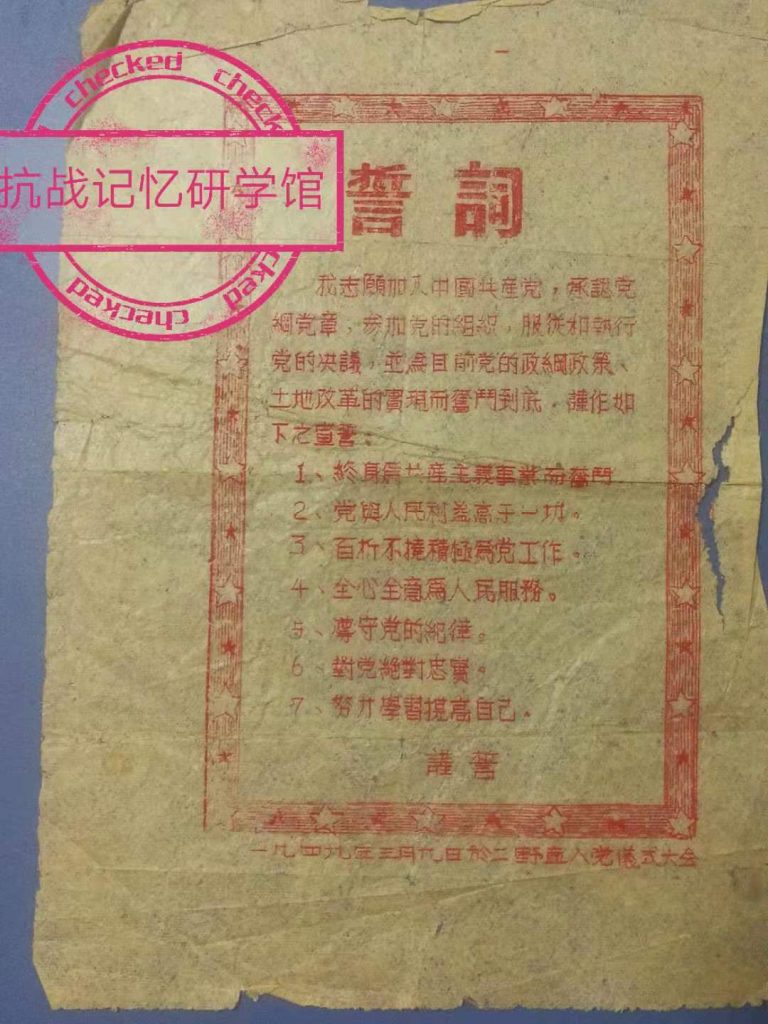 checked checked
抗战记忆研学馆
checked checked
誓詞
我志願加入中國共産党，承認党
綱党章，参加党的組织，服從和執行
党的决議，並為目前党的政綱政策、
土地改革的實現而奮鬥到底，謹作如
下之宣誓：
1、終身為共産主義事業而奮鬥
2、党與人民利益高于一切。
3、百折不撓積極為党工作。
4、全心全意為人民服務。
5、遵守党的紀律。
6、對党絕對忠實。
7、努力學習提高自己。
謹誓
一九四九年三月九日於二野直入党儀式大会